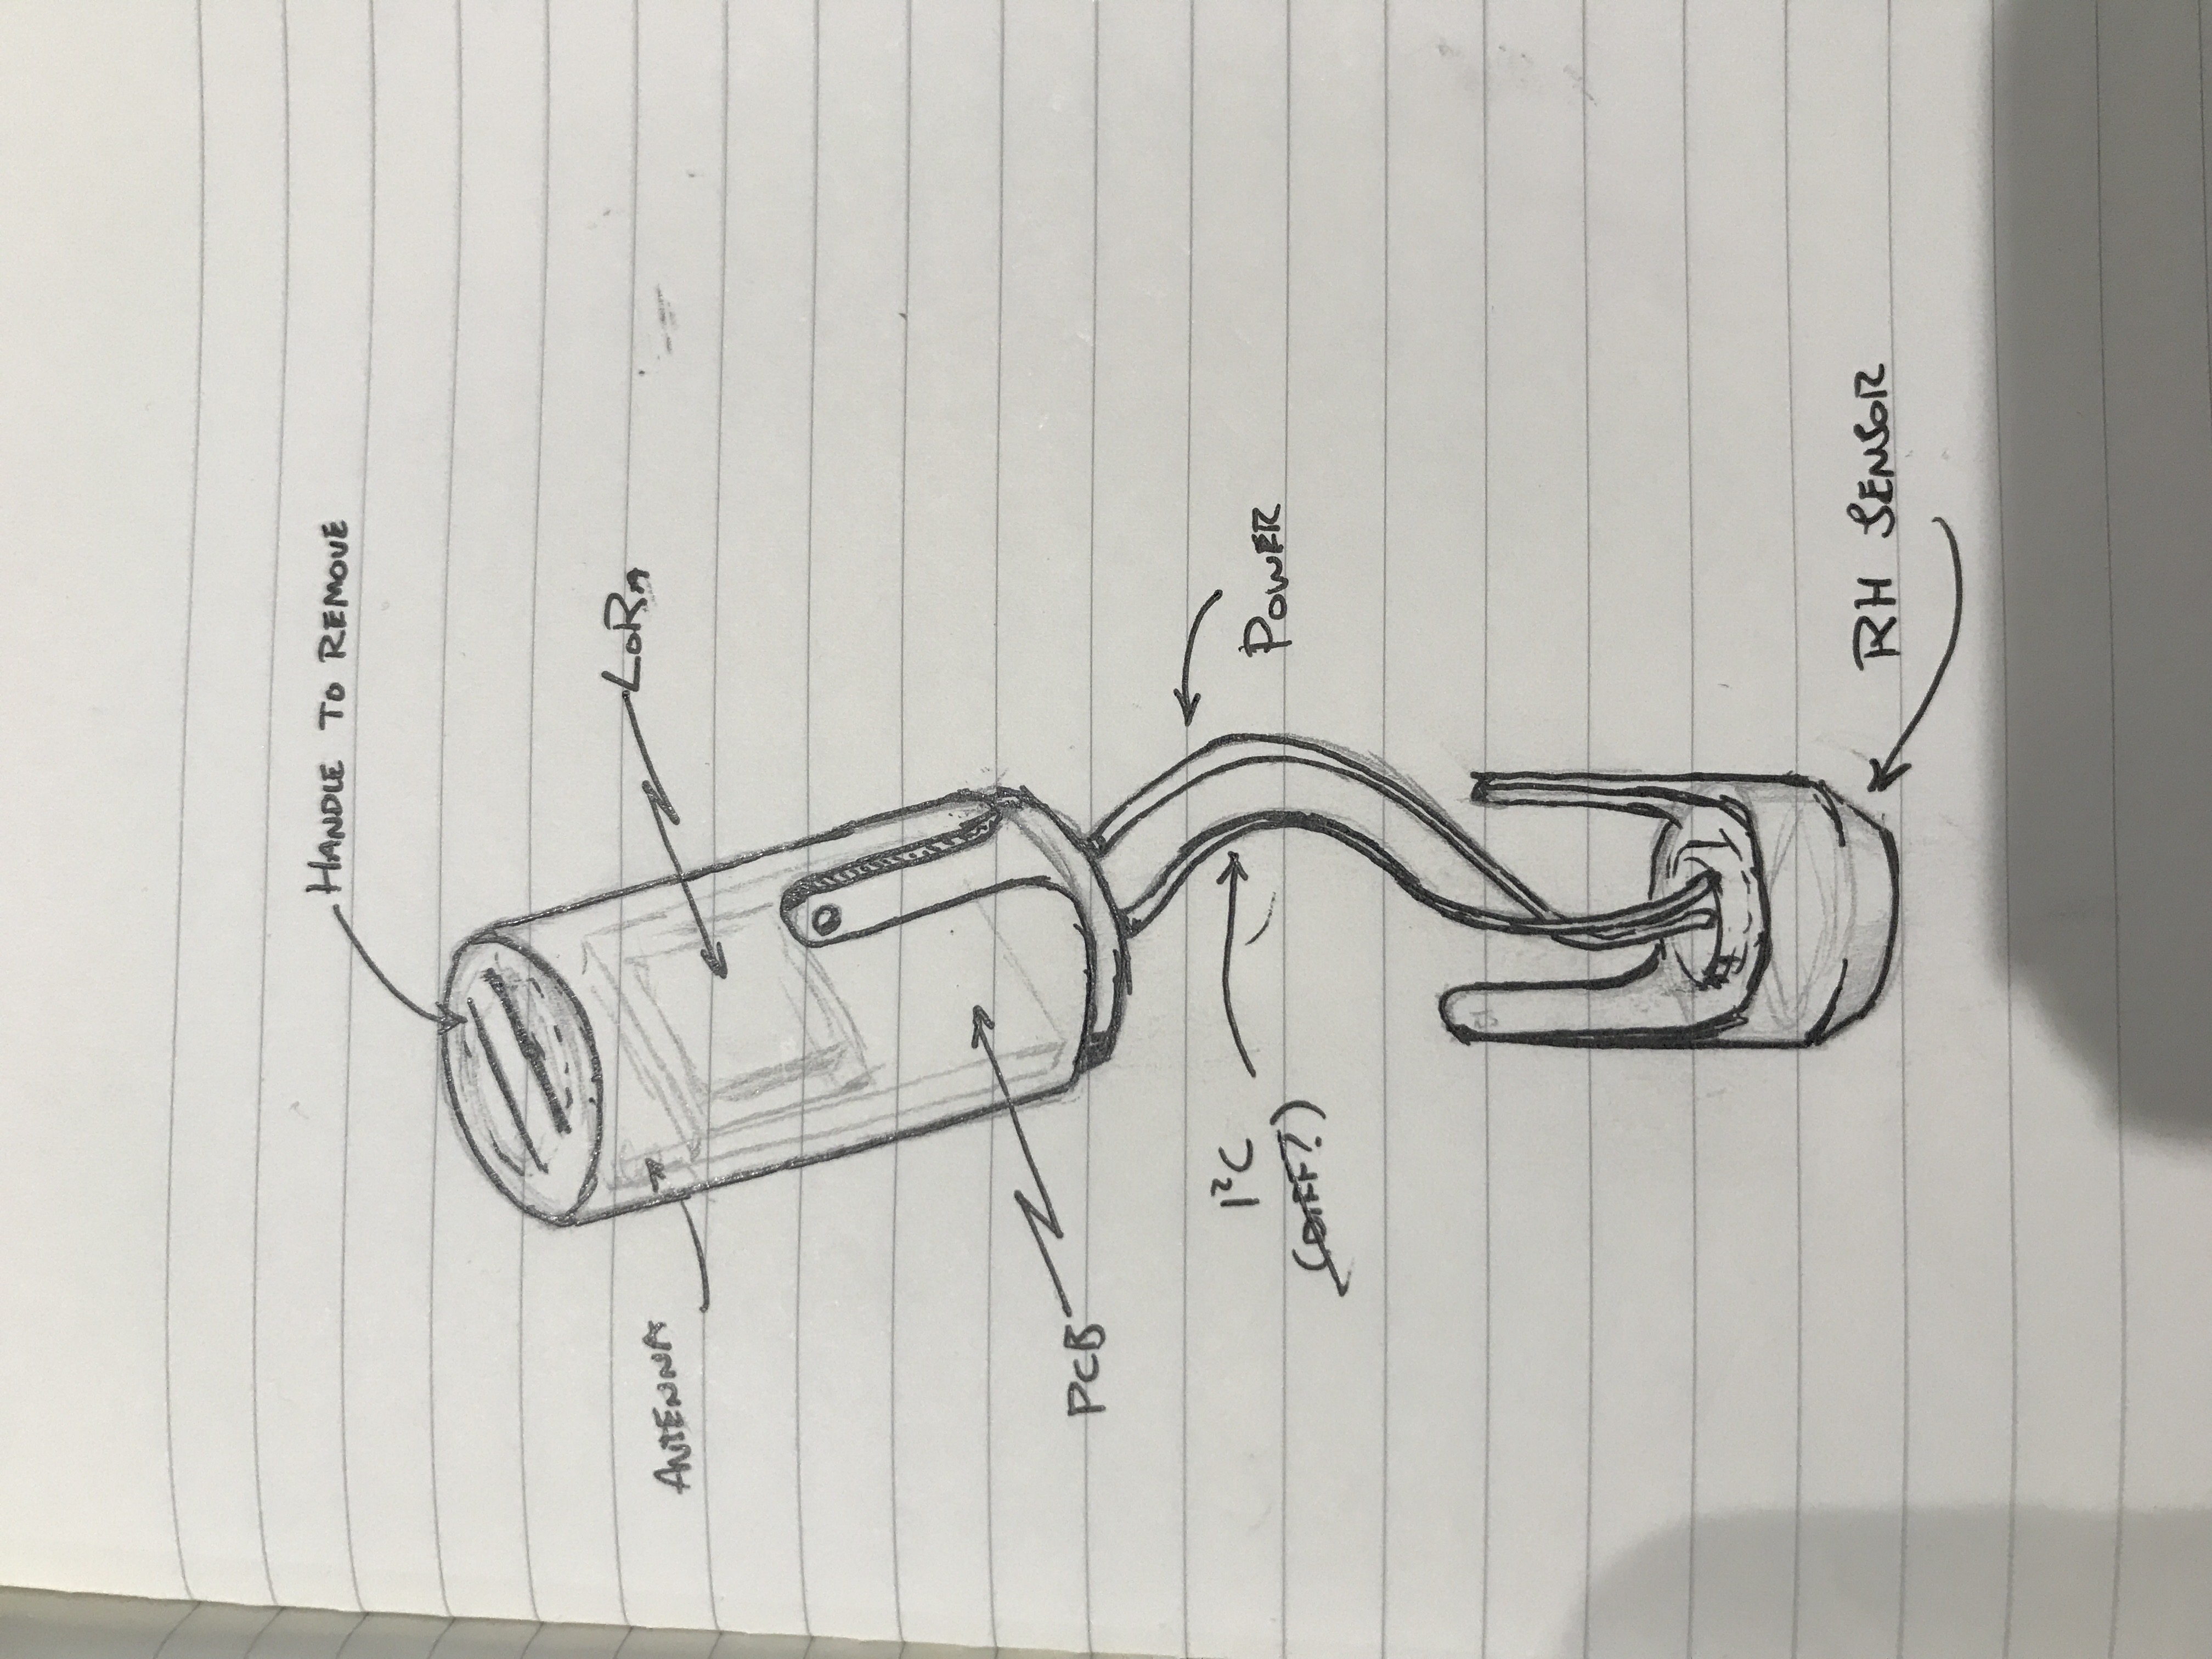 HANDLE TO REMOVE
LoRa
ANTENNA
PCB
I²C
(DIFF?)
POWER
RH SENSOR